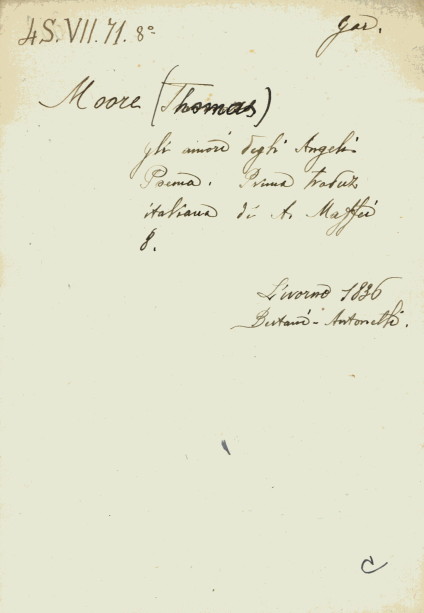 4 S. VII. 71. 8°
Gar.
Moore (Thomas)
gli amori degli Angeli
Poema. Prima traduz
italiana di A. Maffei
8.
Livorno 1836
Bertani-Antonelli.
C